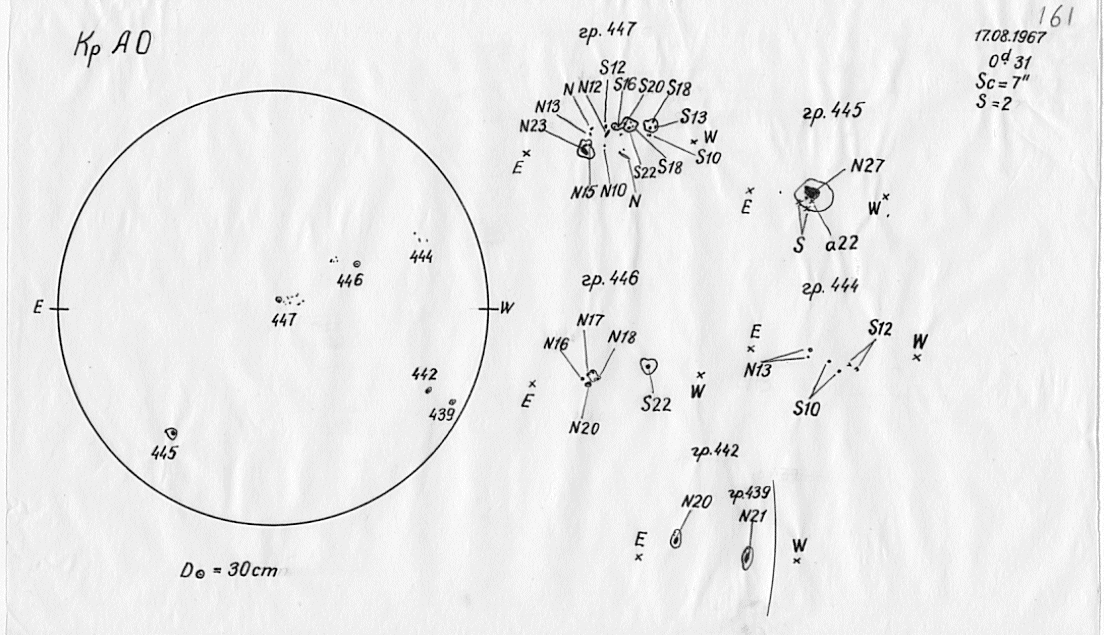 161
Кр АО
17.08.1967
0d 31
Sc = 7"
S = 2
E
W
444
446
447
442
439
445
D⊙ = 30cm
гр. 447
S12
N N12 S16 S20 S18
N13
S13
N23
W
E
S10
S22 S18
N15 N10
N
гр. 445
N27
E
W
S a22
гр. 446
N17
N16
N18
E
W
S22
N20
гр. 444
E
S12
W
N13
S10
гр. 442
N20
гр. 439
N21
E
W